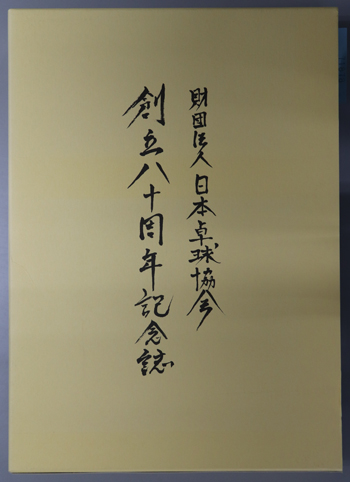 財団法人 日本卓球協会
創立八十周年記念誌